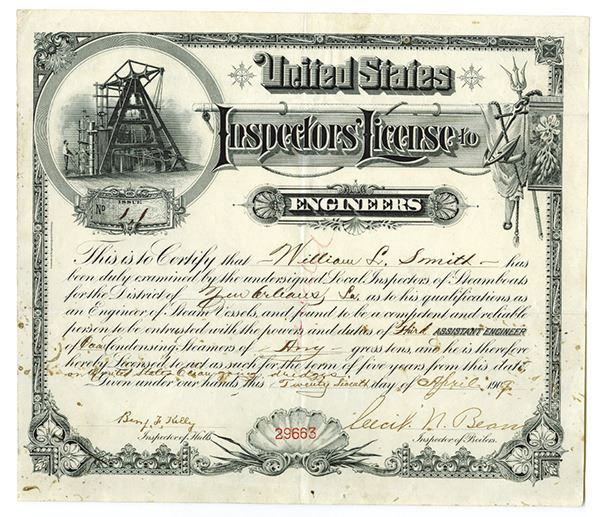 United States
Inspectors' License to
ENGINEERS
ISSUE
No 11
This is to Certify that William L. Smith has
been duly examined by the undersigned Local Inspectors of Steamboats
for the District of New Orleans, La. as to his qualifications as
an Engineer of Steam Vessels, and found to be a competent and reliable
person to be entrusted with the powers and duties of Third ASSISTANT ENGINEER
of Condensing Steamers of Any gross tons, and he is therefore
hereby Licensed to act as such for the term of five years from this date
on United States Ocean going
Given under our hands this Twenty day of April 190
Benj. F. Kelly
Inspector of Hulls.
29663
N. Bean
Inspector of Boilers.